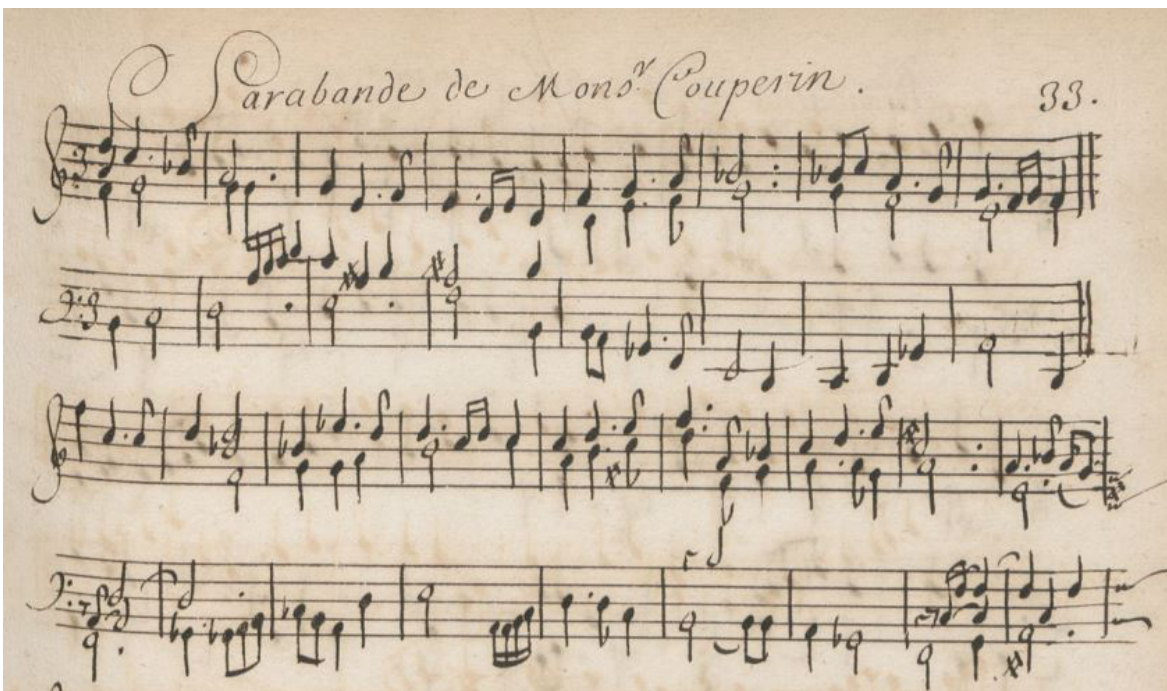 Sarabande de Monsr. Couperin. 33.